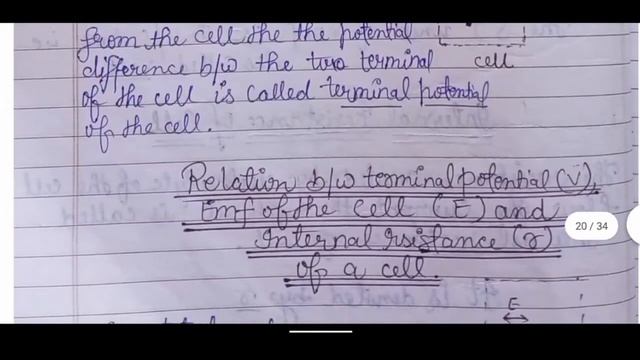 from the cell the the potential
difference b/w the two terminal cell
of the cell is called terminal potential
of the cell.
Relation b/w terminal potential (V),
Emf of the cell (E) and
20 / 34
Internal rsistance (r)
of a cell.
E